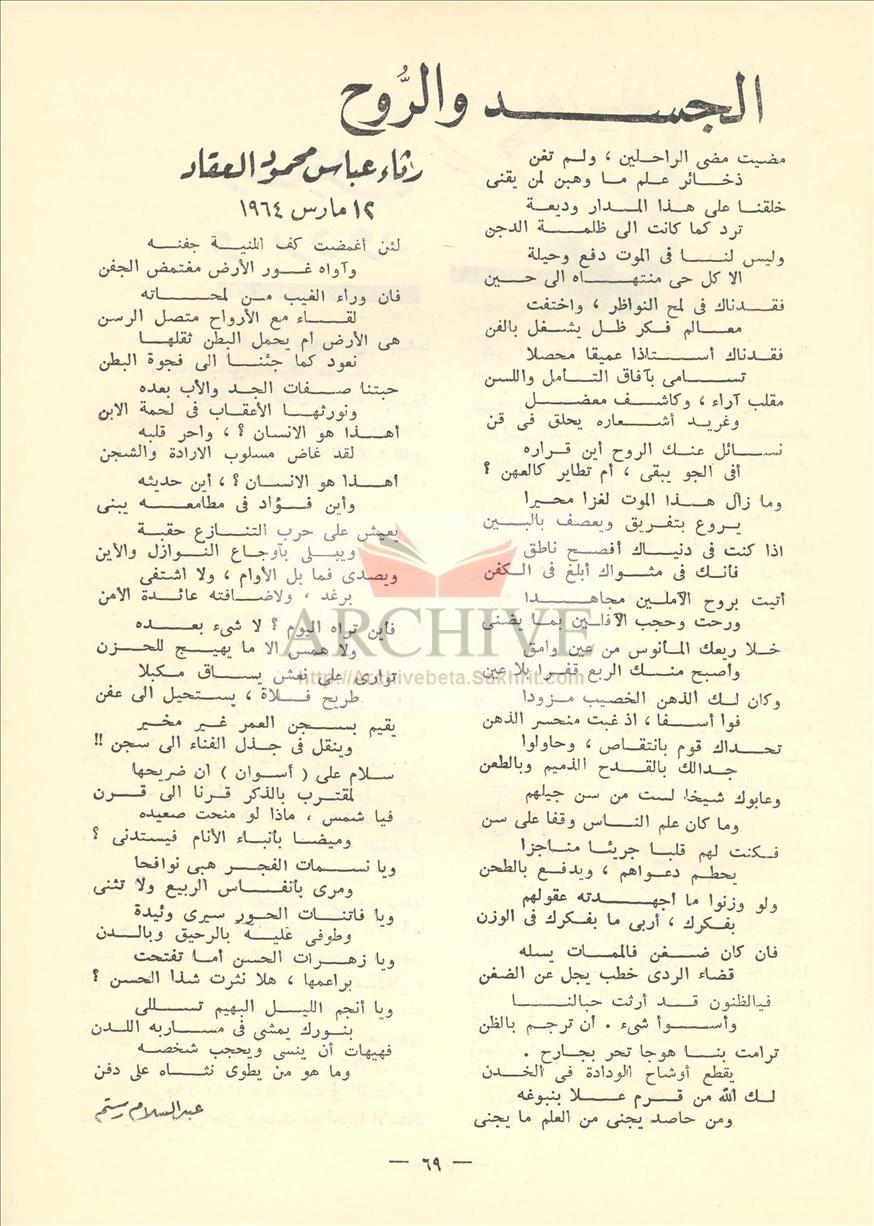 الجســـد والرُّوح
رثاء عباس محمود العقاد
١٢ مارس ١٩٦٤
مضيت مضى الراحلين ، ولم تفن
ذخائر علم ما وهبن لمن يقنى
خلقنا على هذا المدار وديعة
ترد كما كانت الى ظلمة الدجن
وليس لنا فى الموت دفع وحيلة
الا كل حى منتهاه الى حين
فقدناك فى لمح النواظر ، واختفت
معالم فكر ظل يشغل بالفن
فقدناك أستاذا عميقا محصلا
تسامى بآفاق التأمل واللسن
مقلب آراء ، وكاشف معضل
وغريد أشعاره يحلق فى قن
نسائل عنك الروح أين قراره
أفى الجو يبقى ، أم تطاير كالعهن ؟
وما زال هذا الموت لغزا محيرا
يروع بتفريق ويعصف بالبين
اذا كنت فى دنياك أفصح ناطق
فأنك فى مثواك أبلغ فى الكفن
أتيت بروح الآملين مجاهدا
ورحت وحجب الآفلين بما يضنى
خلا ربعك المأنوس من عين وامق
وأصبح منك الربع قفرا بلا عين
وكان لك الذهن الخصيب مزودا
فوا أسفا ، اذ غبت منحسر الذهن
تحداك قوم بانتقاص ، وحاولوا
جدالك بالقدح الذميم وبالطعن
وعابوك شيخا لست من سن جيلهم
وما كان علم الناس وقفا على سن
فكنت لهم قلبا جريئا مناجزا
يحطم دعواهم ، ويدفع بالطحن
ولو وزنوا ما أجهدته عقولهم
بفكرك ، أربى ما بفكرك فى الوزن
فان كان ضغن فالممات يسله
قضاء الردى خطب يجل عن الضغن
فيالظنون قد أرثت حبالنا
وأسوأ شىء . أن ترجم بالظن
ترامت بنا هوجا تحر بجارح .
يقطع أوشاح الودادة فى الخدن
لك الله من قرم علا بنبوغه
ومن حاصد يجنى من العلم ما يجنى
لئن أغمضت كف المنية جفنه
وآواه غور الأرض مغتمض الجفن
فان وراء الغيب من لمحاته
لقاء مع الأرواح متصل الرسن
هى الأرض أم يحمل البطن ثقلها
نعود كما جئنا الى فجوة البطن
حبتنا صفات الجد والأب بعده
ونورثها الأعقاب فى لحمة الابن
أهذا هو الانسان ؟ ، واحر قلبه
لقد غاض مسلوب الارادة والشجن
أهذا هو الانسان ؟ ، أين حديثه
وأين فؤاد فى مطامعه يبنى
يعيش على حرب التنازع حقبة
ويبلى بأوجاع النوازل والأين
ويصدى فما بل الأوام ، ولا اشتفى
برغد ، ولاضافته عائدة الأمن
فأين تراه اليوم ؟ لا شىء بعده
ولا همس الا ما يهيج للحزن
توارى على نعش يساق مكبلا
طريح فلاة ، يستحيل الى عفن
يقيم بسجن العمر غير مخير
وينقل فى جذل الفناء الى سجن !!
سلام على ( أسوان ) ان ضريحها
لمقترب بالذكر قرنا الى قرن
فيا شمس ، ماذا لو منحت صعيده
وميضا بأنباء الأنام فيستدنى ؟
ويا نسمات الفجر هبى نوافحا
ومرى بأنفاس الربيع ولا تثنى
ويا فاتنات الحور سيرى وئيدة
وطوفى عليه بالرحيق وبالدن
ويا زهرات الحسن أما تفتحت
براعمها ، هلا نثرت شذا الحسن ؟
ويا أنجم الليل البهيم تسللى
بنورك يمشى فى مساربه اللدن
فهيهات أن ينسى ويحجب شخصه
وما هو من يطوى نثاه على دفن
عبد السلام رستم
ARCHIVE
http://Archivebeta.Sakhrit.com
— ٦٩ —